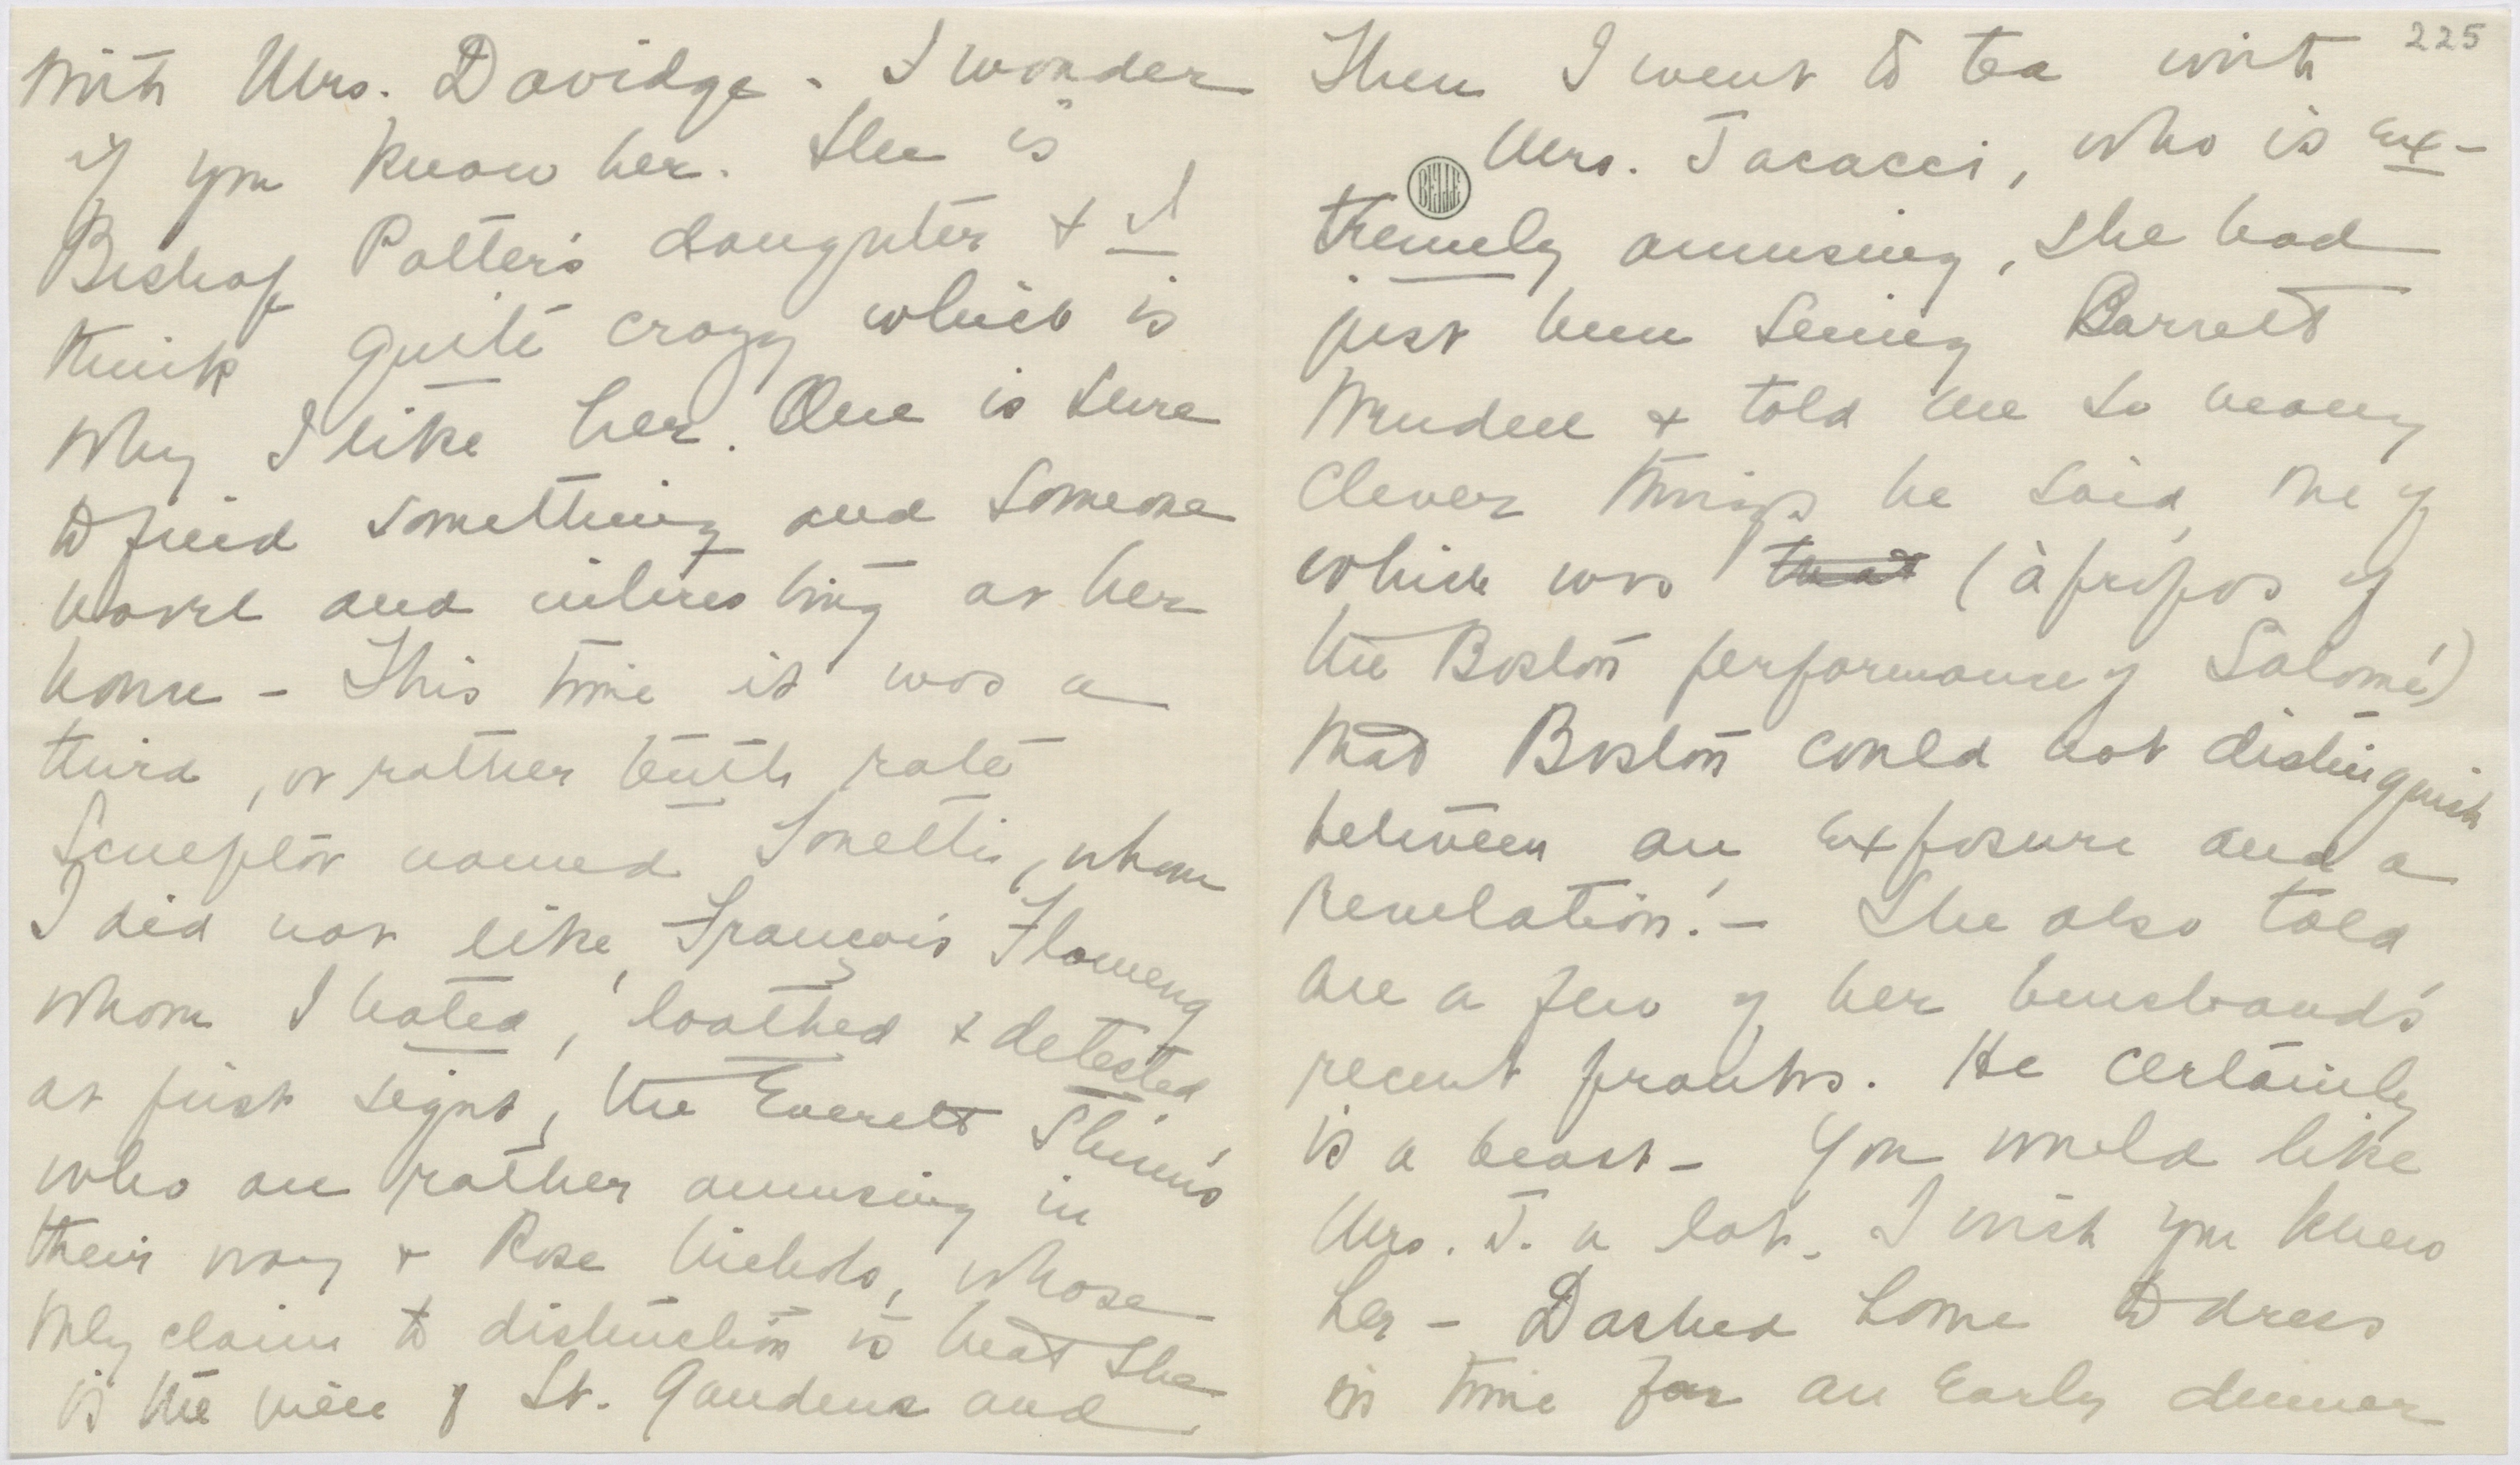 with Mrs. Davidge - I wonder
if you know her. She is
Bishop Potter's daughter & I
think quite crazy which is
why I like her. One is sure
to find something and someone
novel and interesting at her
house - This time it was a
third, or rather tenth rate
Sculptor named Tonetti, whom
I did not like, François Flameng
whom I hated, loathed & detested
at first sight, the Everett Shinn's
who are rather amusing in
their way & Rose Nichols, whose
only claim to distinction is that she
is the niece of St. Gaudens and
225
Then I went to tea with
Mrs. Jacacci, who is ex-
BELLE
tremely amusing, she had
just been seeing Barrett
Wendell & told me so many
clever things he said, one of
which was that (àpropos of
the Boston performance of Salomé)
that Boston could not distinguish
between an exposure and a
revelation! - She also told
me a few of her husband's
recent pranks. He certainly
is a beast - You would like
Mrs. J. a lot. I wish you knew
her - Dashed home to dress
in time for an early dinner